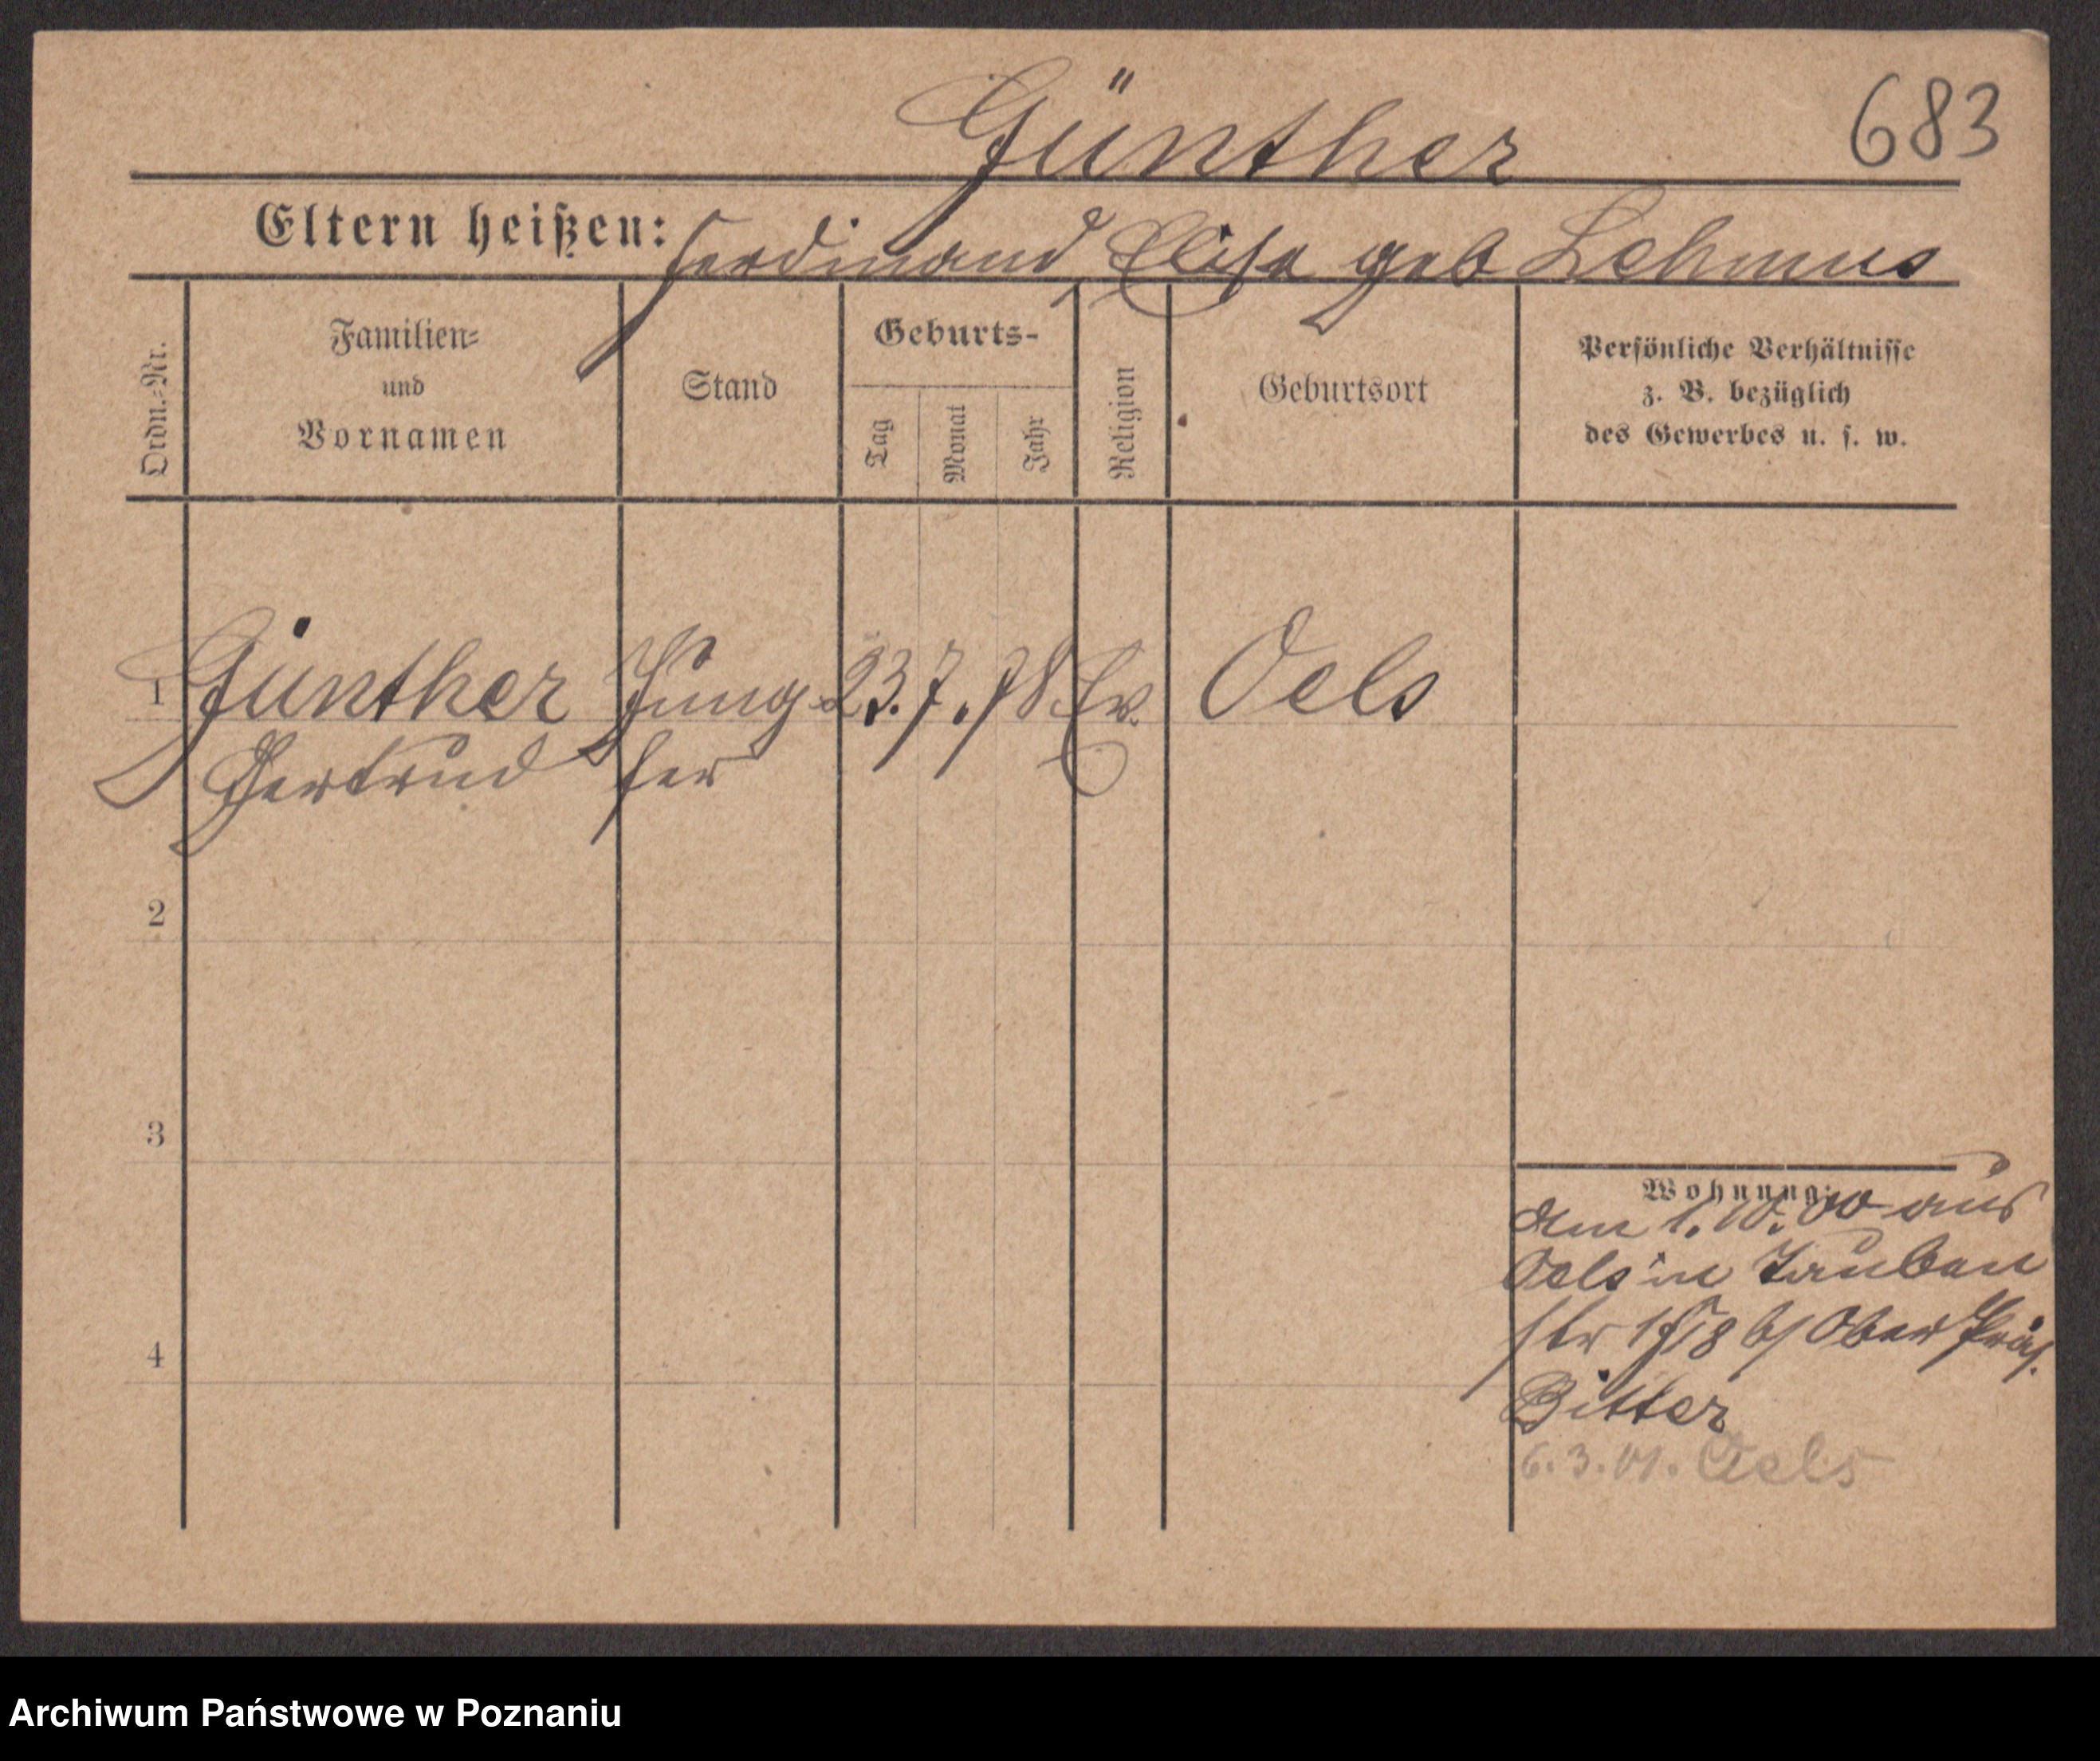 Günther 683
Eltern heißen: Ferdinand Elise geb Lehmus
Ordn.-Nr.
Familien-
und
Vornamen
Stand
Geburts-
Tag
Monat
Jahr
Religion
Geburtsort
Persönliche Verhältnisse
z. B. bezüglich
des Gewerbes u. s. w.
1 Günther Jung- 23. 7. 78 Ev. Oels
Gertrud fer
2
3
4
Wohnung:
Am 1. 10. 00 aus
Oels in Tauben
str b/ Ober Präs.
Bitter
6. 3. 01. Oels
Archiwum Państwowe w Poznaniu